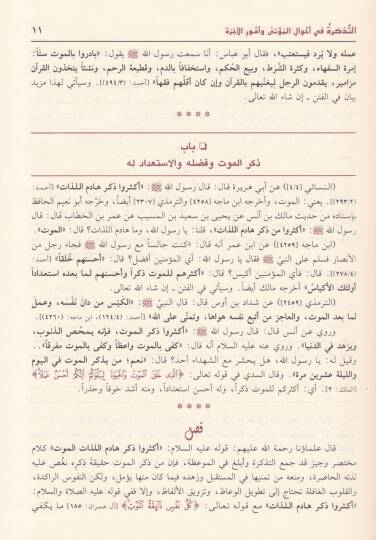 التَّذكرة في أحوال المَوْتى وأمُور الآخرة
١١
عمله ولا يُرد فيستعتب»، فقال أبو عباس: أنا سمعت رسول الله ﷺ يقول: «بادروا بالموت ستّاً:
إمرة السفهاء، وكثرة الشُّرَط، وبيع الحُكم، واستخفافاً بالدم، وقطيعة الرحم، ونشئاً يتخذون القرآن
مزامير، يقدمون الرجل ليغنّيهم بالقرآن وإن كان أقلّهم فقهاً» [أحمد: (٤٩٤/٣)]. وسيأتي لهذا مزيد
بيان في الفتن ـ إن شاء الله تعالى.
❑ باب
ذكر الموت وفضله والاستعداد له
(النسائي [٤/٤]) عن أبي هريرة قال: قال رسول الله ﷺ: «أكثروا ذكر هاذم اللذات» [أحمد:
(٢٩٣/٢)]. يعني: الموت، وأخرجه ابن ماجه [٤٢٥٨] والترمذي [٢٣٠٧] أيضاً، وخرَّجه أبو نعيم الحافظ
بإسناده من حديث مالك بن أنس عن يحيى بن سعيد بن المسيب عن عمر بن الخطاب قال: قال
رسول الله ﷺ: «أكثروا من ذكر هاذم اللذات»، قلنا: يا رسول الله، وما هاذم اللذات؟ قال: «الموت».
(ابن ماجه [٤٢٥٩]) عن ابن عمر أنه قال: «كنت جالساً مع رسول الله ﷺ فجاء رجل من
الأنصار فسلم على النبيّ ﷺ فقال: يا رسول الله: أيُّ المؤمنين أفضل؟ قال: «أحسنهم خُلقاً» [أحمد:
(٢٧٨/٤)]. قال: فأي المؤمنين أكيس؟ قال: «أكثرهم للموت ذكراً وأحسنهم لما بعده استعداداً
أولئك الأكياس» أخرجه مالك أيضاً. وسيأتي في الفتن ـ إن شاء الله تعالى.
(الترمذي [٢٤٥٩]) عن شداد بن أوس قال: قال النبيّ ﷺ: «الكيّس من دانَ نفْسَه، وعمل
لما بعد الموت، والعاجز من أتبع نفسه هواها، وتمنّى على الله» [أحمد: (١٢٤/٤)، ابن ماجه: (٤٢٦٠)].
وروي عن أنس قال: قال رسول الله ﷺ: «أكثروا ذكر الموت، فإنه يمحّص الذنوب،
ويزهد في الدنيا». وروي عنه عليه السلام أنه قال: «كفى بالموت واعظاً وكفى بالموت مفرقاً»..
وقيل له: يا رسول الله، هل يحشر مع الشهداء أحد؟ قال: «نعم؛ من يذكر الموت في اليوم
والليلة عشرين مرة». وقال السدي في قوله تعالى: ﴿الَّذِي خَلَقَ الْمَوْتَ وَالْحَيَاةَ لِيَبْلُوَكُمْ أَيُّكُمْ أَحْسَنُ عَمَلًا﴾
[الملك: ٢]. أي: أكثركم للموت ذكراً، وله أحسن استعداداً، ومنه أشد خوفاً وحذراً.
فصل
قال علماؤنا رحمة الله عليهم: قوله عليه السلام: «أكثروا ذكر هاذم اللذات الموت» كلام
مختصر وجيز قد جمع التذكرة وأبلغ في الموعظة، فإن من ذكر الموت حقيقة ذكره نغّص عليه
لذته الحاضرة، ومنعه من تمنيها في المستقبل وزهده فيما كان منها يؤمل، ولكن النفوس الراكدة،
والقلوب الغافلة تحتاج إلى تطويل الوعاظ، وتزويق الألفاظ، وإلا ففي قوله عليه الصلاة والسلام:
«أكثروا ذكر هاذم اللذات» مع قوله تعالى: ﴿كُلُّ نَفْسٍ ذَائِقَةُ الْمَوْتِ﴾ [آل عمران: ١٨٥] ما يكفي